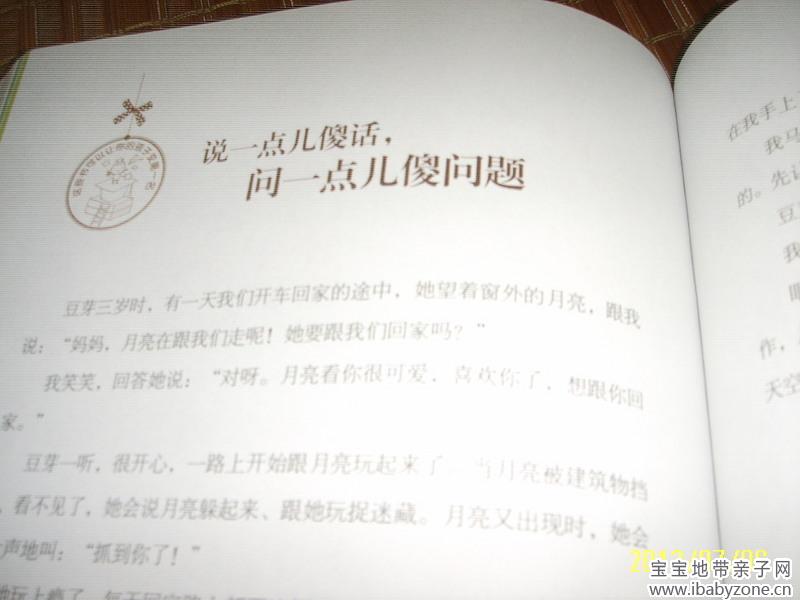 这些书可以让你的孩子变第一名
说一点儿傻话，
问一点儿傻问题
豆芽三岁时，有一天我们开车回家的途中，她望着窗外的月亮，跟我
说：“妈妈，月亮在跟我们走呢！她要跟我们回家吗？”
我笑笑，回答她说：“对呀。月亮看你很可爱，喜欢你了，想跟你回
家。”
豆芽一听，很开心，一路上开始跟月亮玩起来了。当月亮被建筑物挡
，看不见了，她会说月亮躲起来、跟她玩捉迷藏。月亮又出现时，她会
声地叫：“抓到你了！”
玩上瘾了，每天回家路上
在我手上
我马
的。先让
豆
我
作，
天空
宝宝地带亲子网
www.ibabyzone.cn